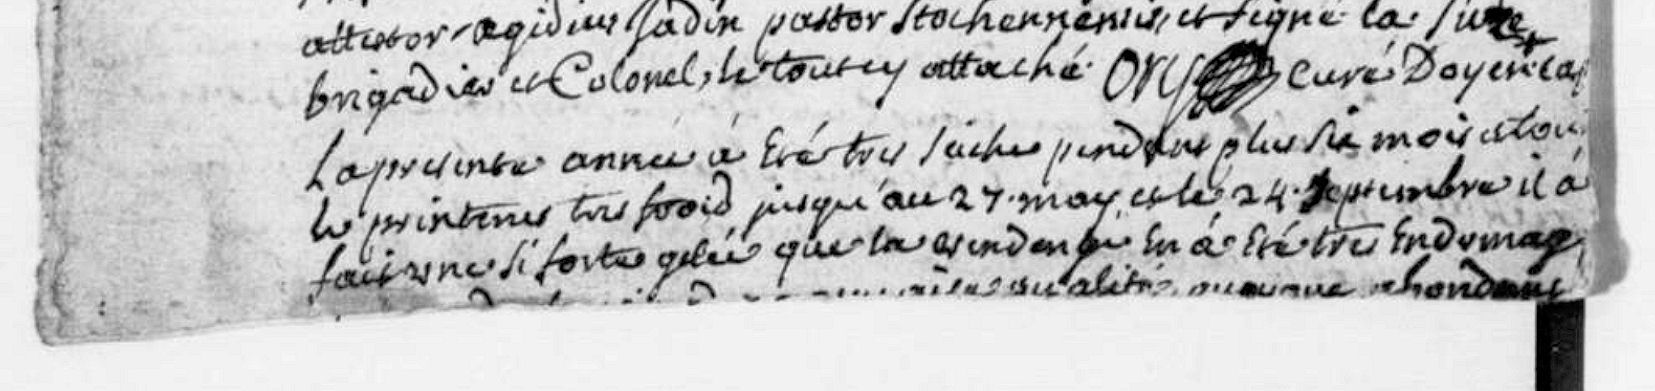 attestor Ægidius Jadin pastor Stochennensis, et signé la
brigadier et Colonel, le tout cy attaché ORY curé Doyen
La presente année a Eté tres seiche pendant plus six mois et tout
le printems tres froid jusqu'au 27 may, et le 24 Septembre il á
fait une si forte gelée que la vendange En a Eté tres Endomag
qualité, quoique abondante